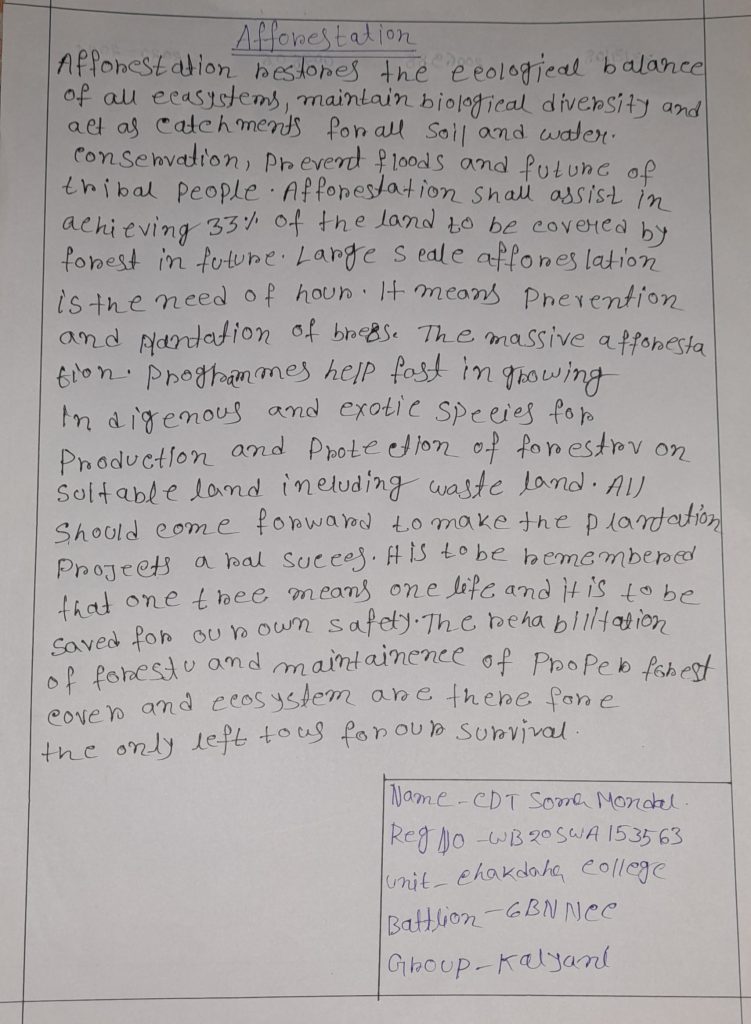 Afforestation
Afforestation restores the ecological balance
of all ecasystems, maintain biological diversity and
act as catchments for all soil and water.
conservation, prevent floods and future of
tribal people. Afforestation shall assist in
achieving 33% of the land to be covered by
forest in future. Large scale afforeslation
is the need of hour. It means Prevention
and plantation of trees. The massive afforesta
tion. Programmes help fast in growing
indigenous and exotic species for
Production and Protection of forestrv on
Suitable land including waste land. All
Should come forward to make the plantation
Projects a ral succes. It is to be remembered
that one tree means one life and it is to be
saved for our own safety. The rehabilitation
of forestu and maintainence of Proper forest
cover and ecosystem are there fore
the only left to us for our survival.
Name - CDT Soma Mondal.
Reg No - WB20SWA153563
unit - chakdaha college
Battlion - 6BN NCC
Group - Kalyani